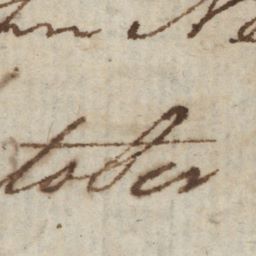 hn Ne
tober